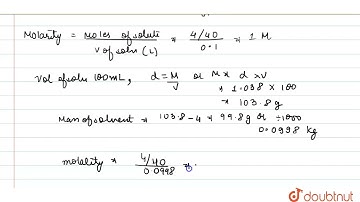 Molarity = moles of solute / V of soln (L) = 4/40 / 0.1 = 1 M
Vol of soln 100mL, d = M/V or M = d × V
= 1.038 × 100
= 103.8 g
Mass of solvent = 103.8 - 4 = 99.8 g or ÷1000
0.0998 kg
molality = 4/40 / 0.0998 =
doubtnut